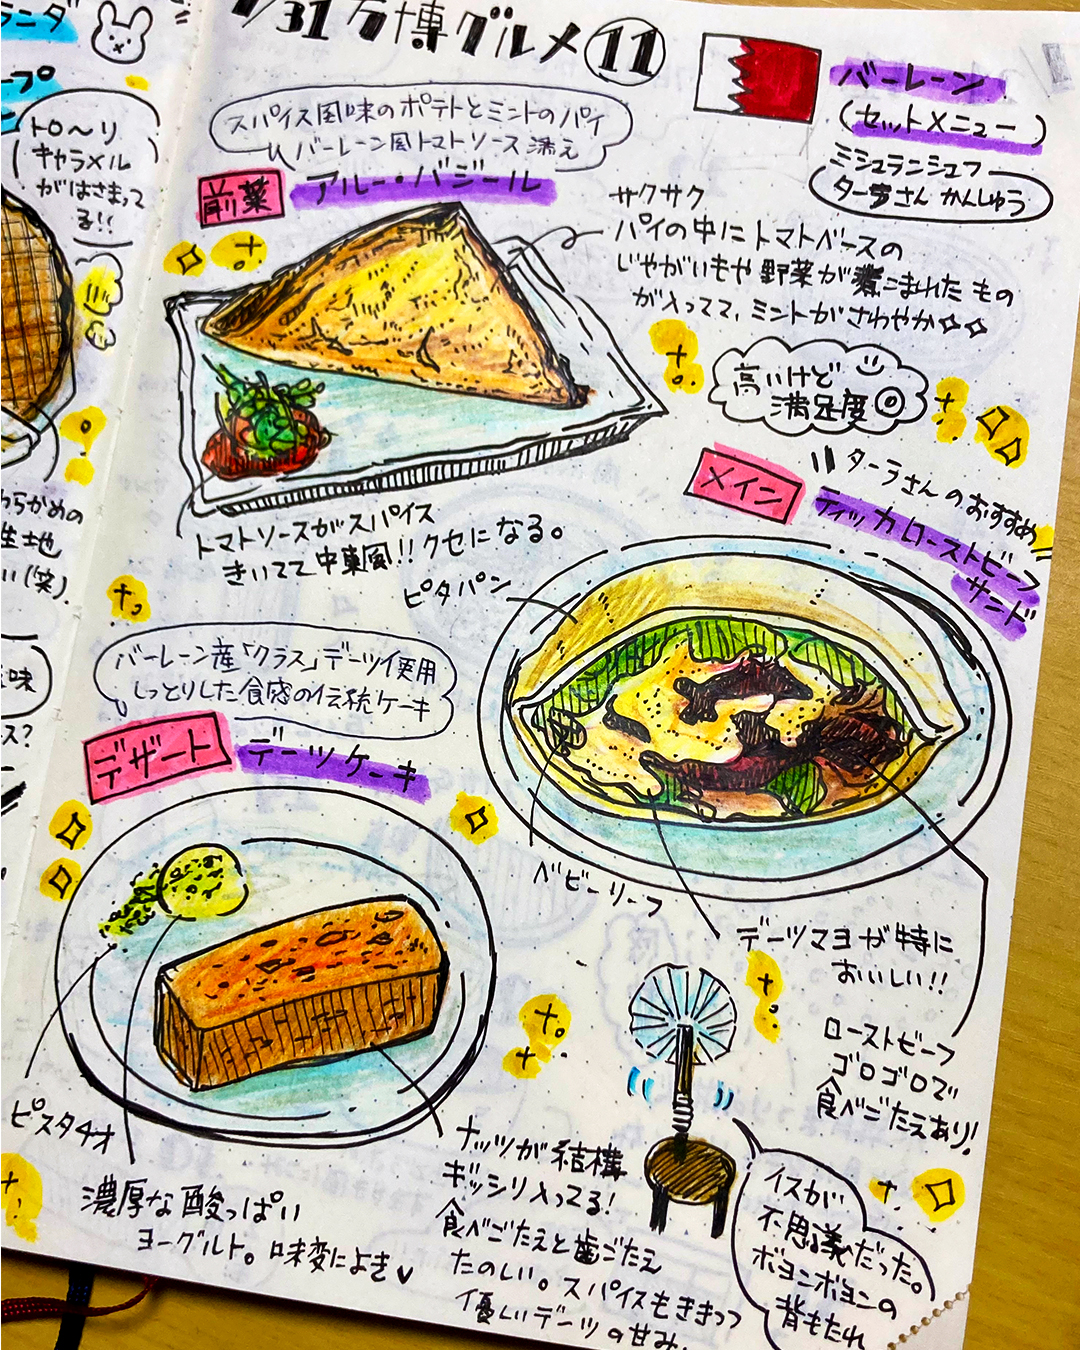 7/31 万博グルメ 11
バーレーン
(セットメニュー)
ミシュランシェフ
ターラさん かんしゅう
スパイス風味のポテトとミントのパイ
バーレーン風トマトソース添え
前菜
アルー・バジール
サクサク
パイの中にトマトベースの
じゃがいもや野菜が煮こまれたもの
が入ってて、ミントがさわやか
高いけど
満足度◎
トマトソースがスパイス
きいてて中東風!!クセになる。
メイン
ターラさんのおすすめ
ティッカローストビーフ
サンド
ピタパン
ベビーリーフ
デーツマヨが特に
おいしい!!
ローストビーフ
ゴロゴロで
食べごたえあり!
バーレーン産「クラス」デーツ使用
しっとりした食感の伝統ケーキ
デザート
デーツケーキ
ピスタチオ
濃厚な酸っぱい
ヨーグルト。味変によき
ナッツが結構
ギッシリ入ってる!
食べごたえと歯ごたえ
たのしい。スパイスもききつつ
優しいデーツの甘み。
イスが
不思議だった。
ボヨンボヨンの
背もたれ
トロ〜リ
キャラメル
がはさまって
る!!
わらかめの
生地
い(笑).
味
ス?